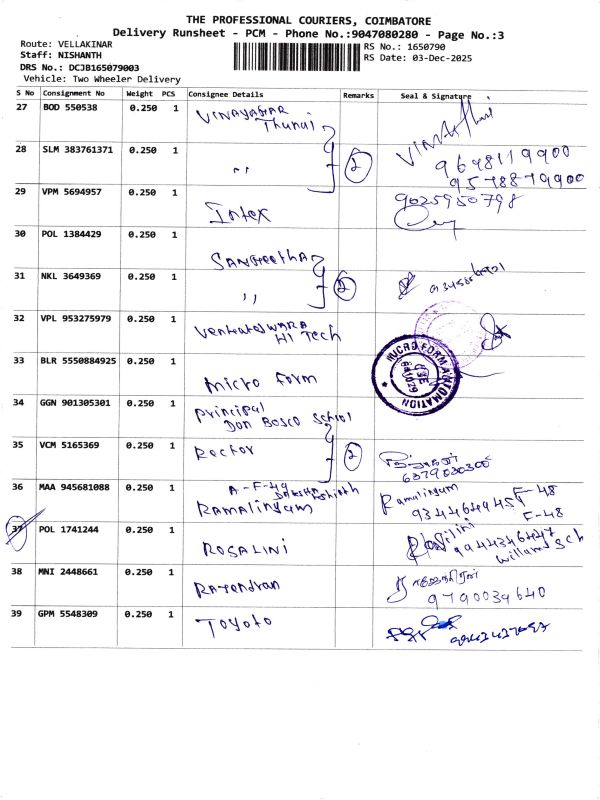 THE PROFESSIONAL COURIERS, COIMBATORE
Delivery Runsheet - PCM - Phone No.:9047080280 - Page No.:3
Route: VELLAKINAR
RS No.: 1650790
Staff: NISHANTH
RS Date: 03-Dec-2025
DRS No.: DCJB165079003
Vehicle: Two Wheeler Delivery
S No Consignment No Weight PCS Consignee Details Remarks Seal & Signature
27 BOD 550538 0.250 1 VINAYAGAR
Thunai
28 SLM 383761371 0.250 1 ,, 2
9698119900
9578879900
29 VPM 5694957 0.250 1 Intex 9025950798
30 POL 1384429 0.250 1 SANGEETHA
31 NKL 3649369 0.250 1 ,, 2
32 VPL 953275979 0.250 1 VENKATESWARA
HI Tech
33 BLR 5550884925 0.250 1 Micro Form
MICRO FORM AUTOMATION
CBE
641029
34 GGN 901305301 0.250 1 Principal
DON BOSCO School
35 VCM 5165369 0.250 1 Rector 2
36 MAA 945681088 0.250 1 A-F-49
RAMALINGAM
Ramalingam F-48
37 POL 1741244 0.250 1 ROSALINI
F-48
9944346447
38 MNI 2448661 0.250 1 Rajendran
9790039640
39 GPM 5548309 0.250 1 Toyoto